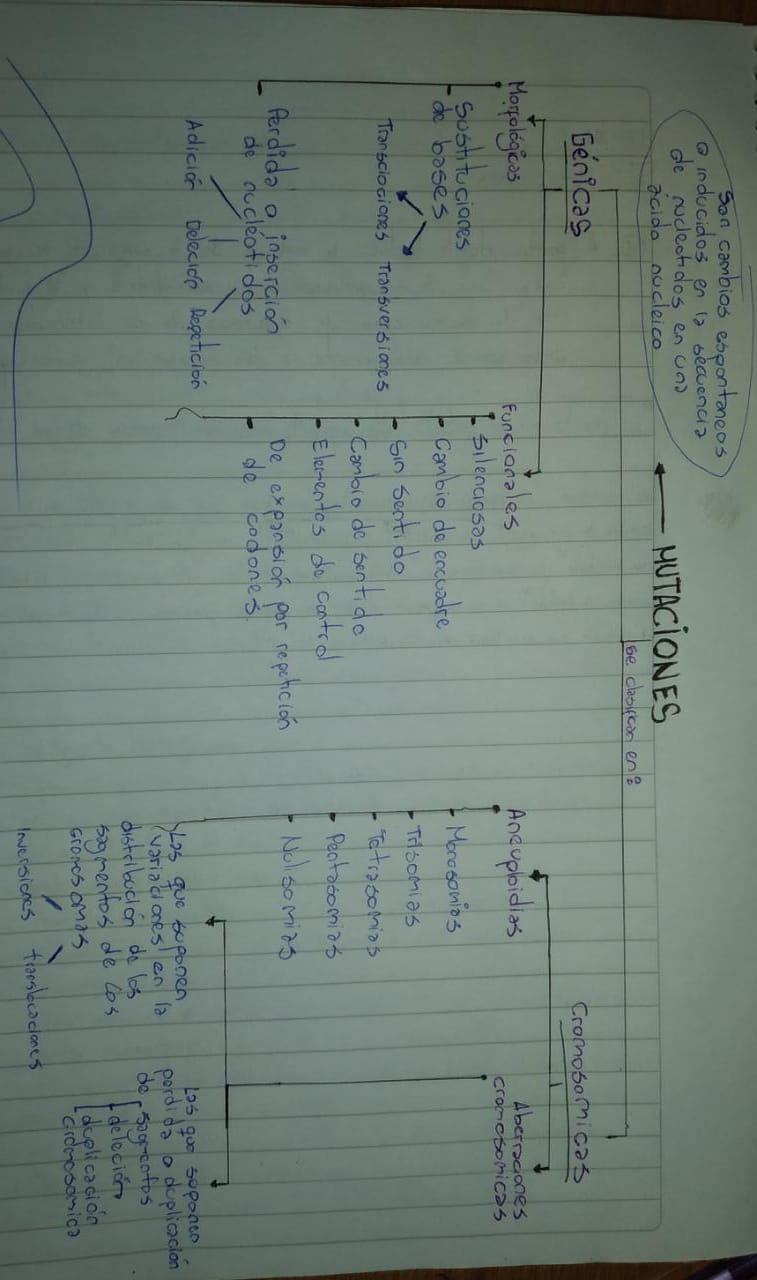 MUTACIONES
Son cambios espontaneos
o inducidos en la secuencia
de nucleotidos en una
ácido nucleico
Se clasifican en:
Génicas
Morfológicas
- Sustituciones
de bases
Transiciones Transversiones
- Perdida o inserción
de nucleótidos
Adición Deleción Repetición
Funcionales
Silenciosas
Cambio de encuadre
Sin sentido
Cambio de sentido
Elementos de control
De expansión por repetición
de codones.
Cromosomicas
Aneuploidias
Monosomias
Trisomias
Tetrasomias
Pentasomias
Nulisomias
Aberraciones
cromosomicas
Las que suponen
variaciones en la
distribución de los
segmentos de los
cromosomas
Inversiones translocaciones
Las que suponen
perdida o duplicación
de segmentos
deleción
duplicación
cromosomica